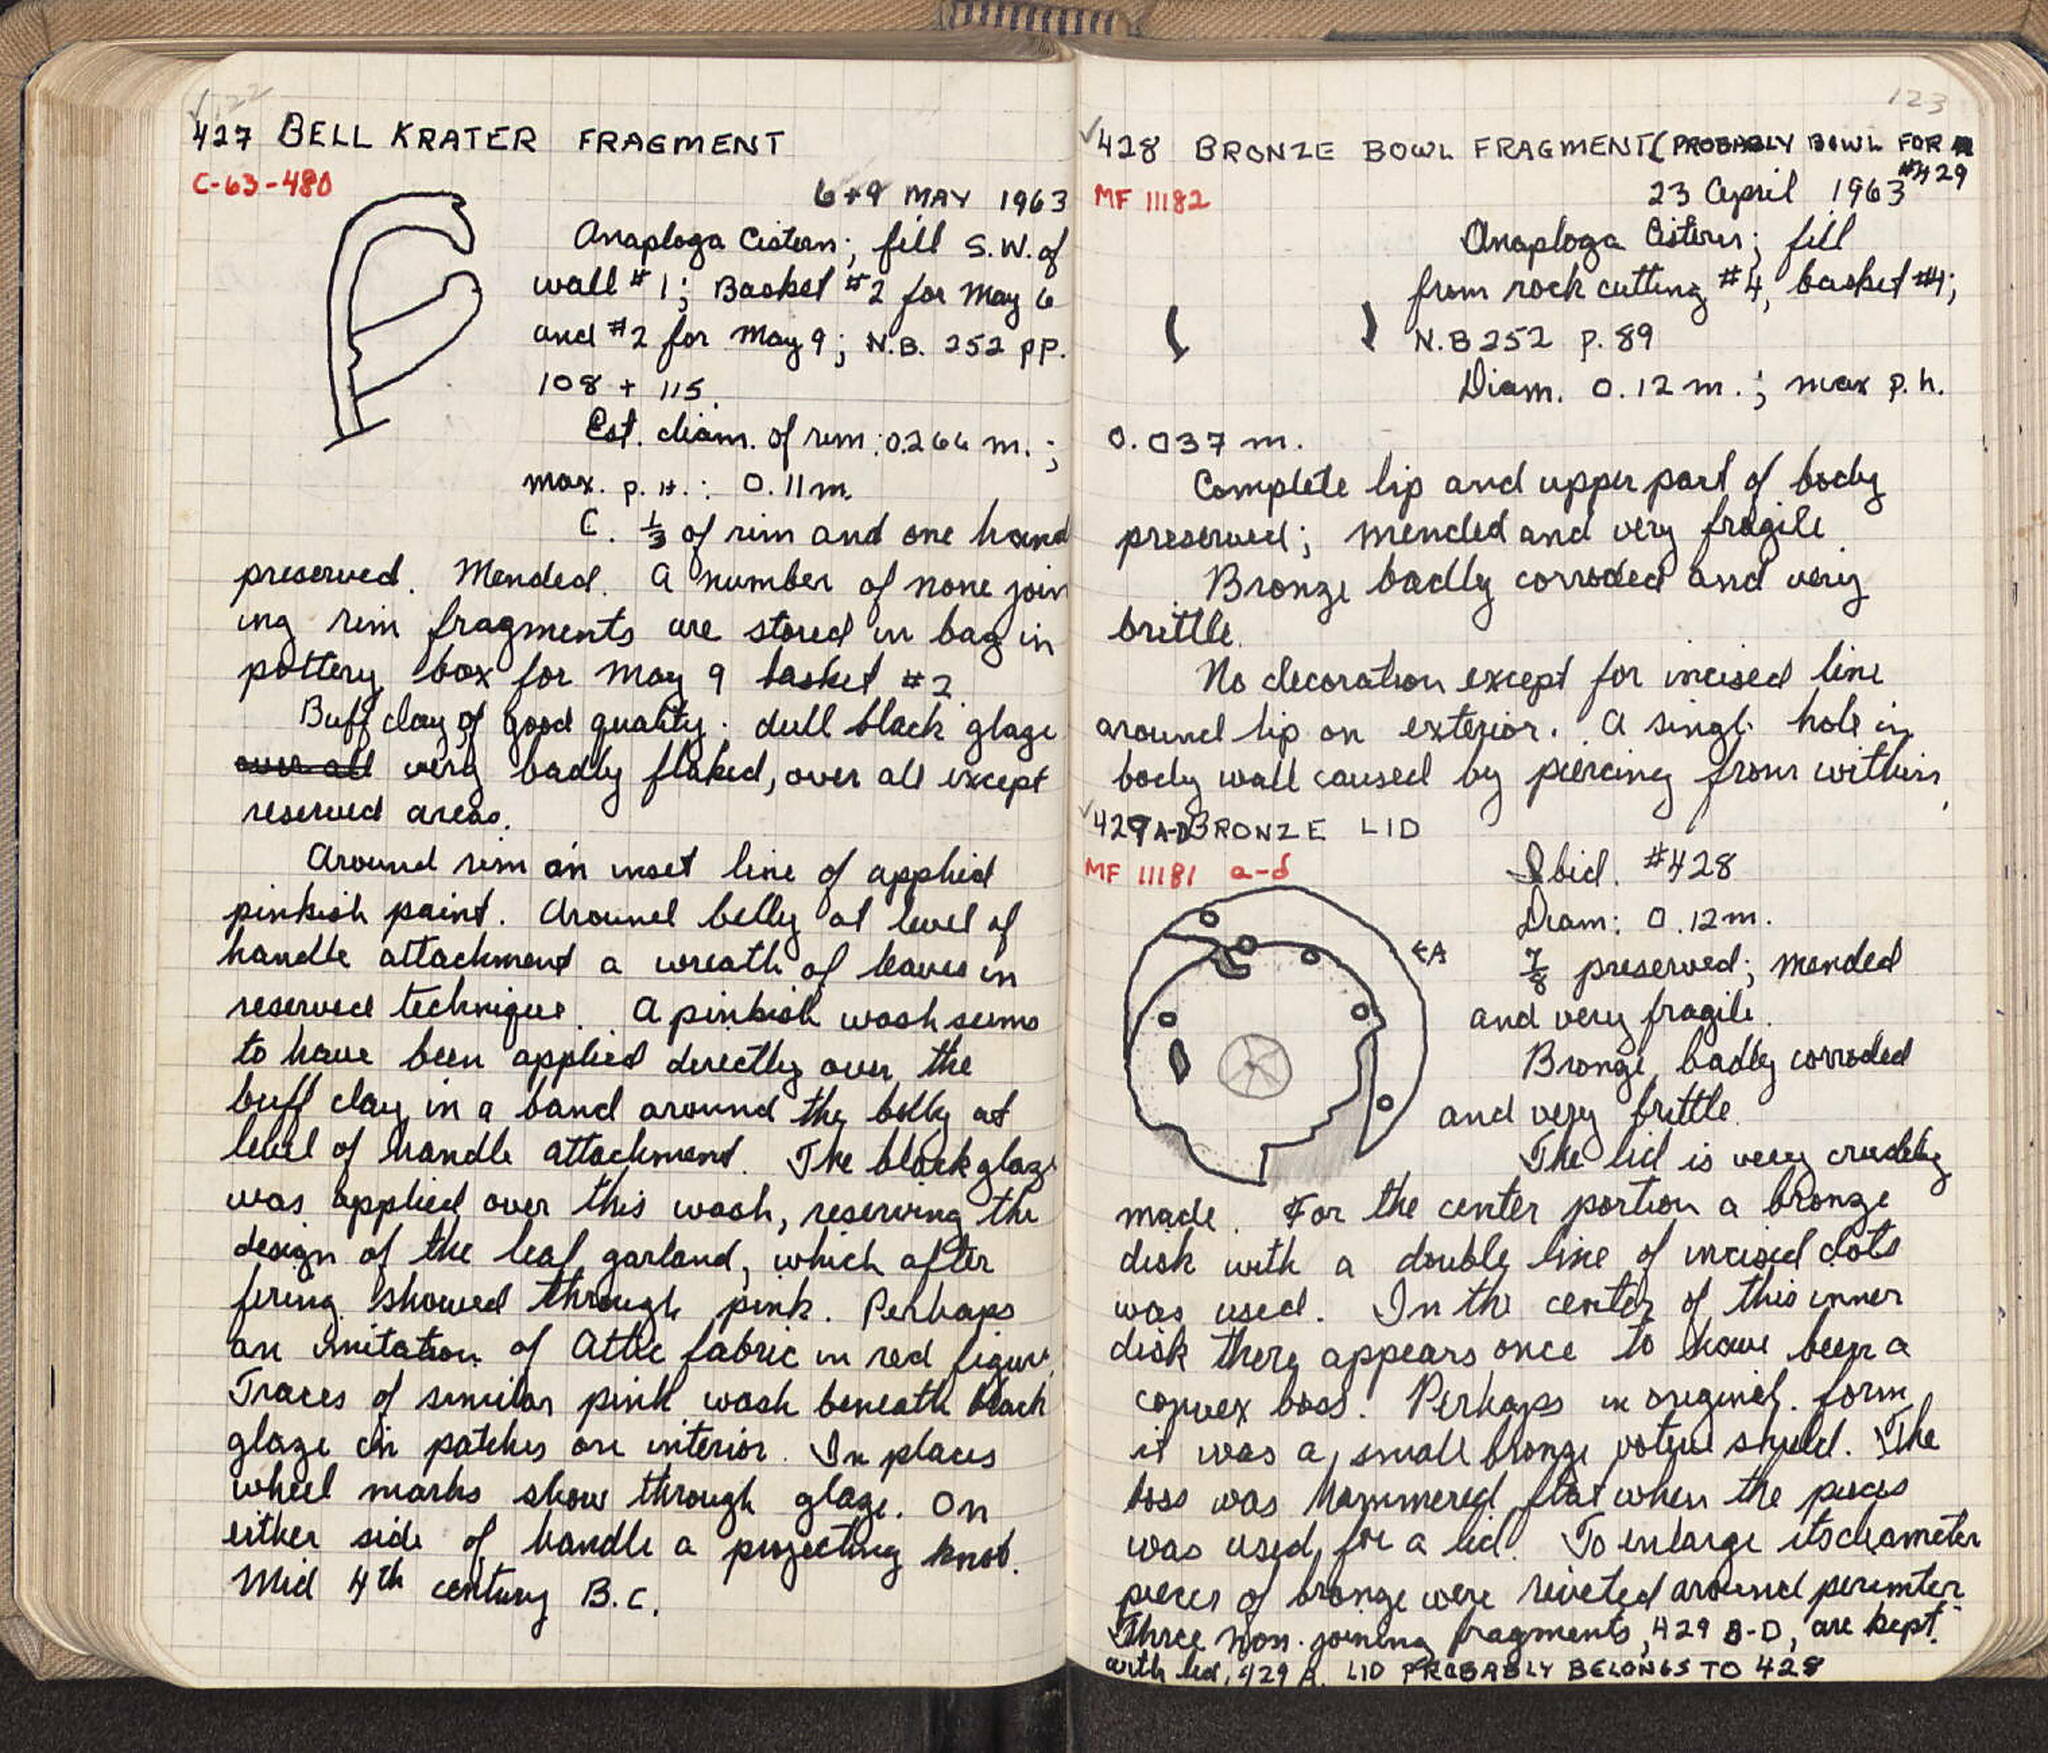 122
427 BELL KRATER FRAGMENT
C-63-480
6+9 MAY 1963
Anaploga Cistern; fill S.W. of
wall #1; Basket #2 for May 6
and #2 for May 9; N.B. 252 pp.
108 + 115.
Est. diam. of rim: 0.266 m.;
max. p. H.: 0.11m.
C. 1/3 of rim and one hand
preserved. Mended. A number of none join
ing rim fragments are stored in bag in
pottery box for May 9 basket #2.
Buff clay of good quality. dull black glaze
over all very badly flaked, over all except
reserved areas.
Around rim an inset line of applied
pinkish paint. Around belly at level of
handle attachment a wreath of leaves in
reserved technique. A pinkish wash seems
to have been applied directly over the
buff clay in a band around the belly at
level of handle attachment. The black glaze
was applied over this wash, reserving the
design of the leaf garland, which after
firing showed through pink. Perhaps
an imitation of Attic fabric in red figure.
Traces of similar pink wash beneath black
glaze in patches on interior. In places
wheel marks show through glaze. On
either side of handle a projecting knob.
Mid 4th century B.C.
123
428 BRONZE BOWL FRAGMENT (PROBABLY BOWL FOR
#429
MF 11182
23 April 1963
Anaploga Cistern; fill
from rock cutting #4, basket #4;
N.B 252 p. 89
Diam. 0.12 m.; max p. h.
0.037 m.
Complete lip and upper part of body
preserved; mended and very fragile.
Bronze badly corroded and very
brittle.
No decoration except for incised line
around lip on exterior. A single hole in
body wall caused by piercing from within.
429 A-D BRONZE LID
MF 11181 a-d
Ibid. #428
Diam: 0.12m.
←A
7/8 preserved; mended
and very fragile.
Bronze badly corroded
and very brittle.
The lid is very crudely
made. For the center portion a bronze
disk with a double line of incised dots
was used. In the center of this inner
disk there appears once to have been a
convex boss. Perhaps in original form
it was a small bronze votive shield. The
boss was hammered flat when the pieces
was used for a lid. To enlarge its diameter
pieces of bronze were riveted around perimeter.
Three non-joining fragments, 429 B-D, are kept
with lid, 429 A. LID PROBABLY BELONGS TO 428